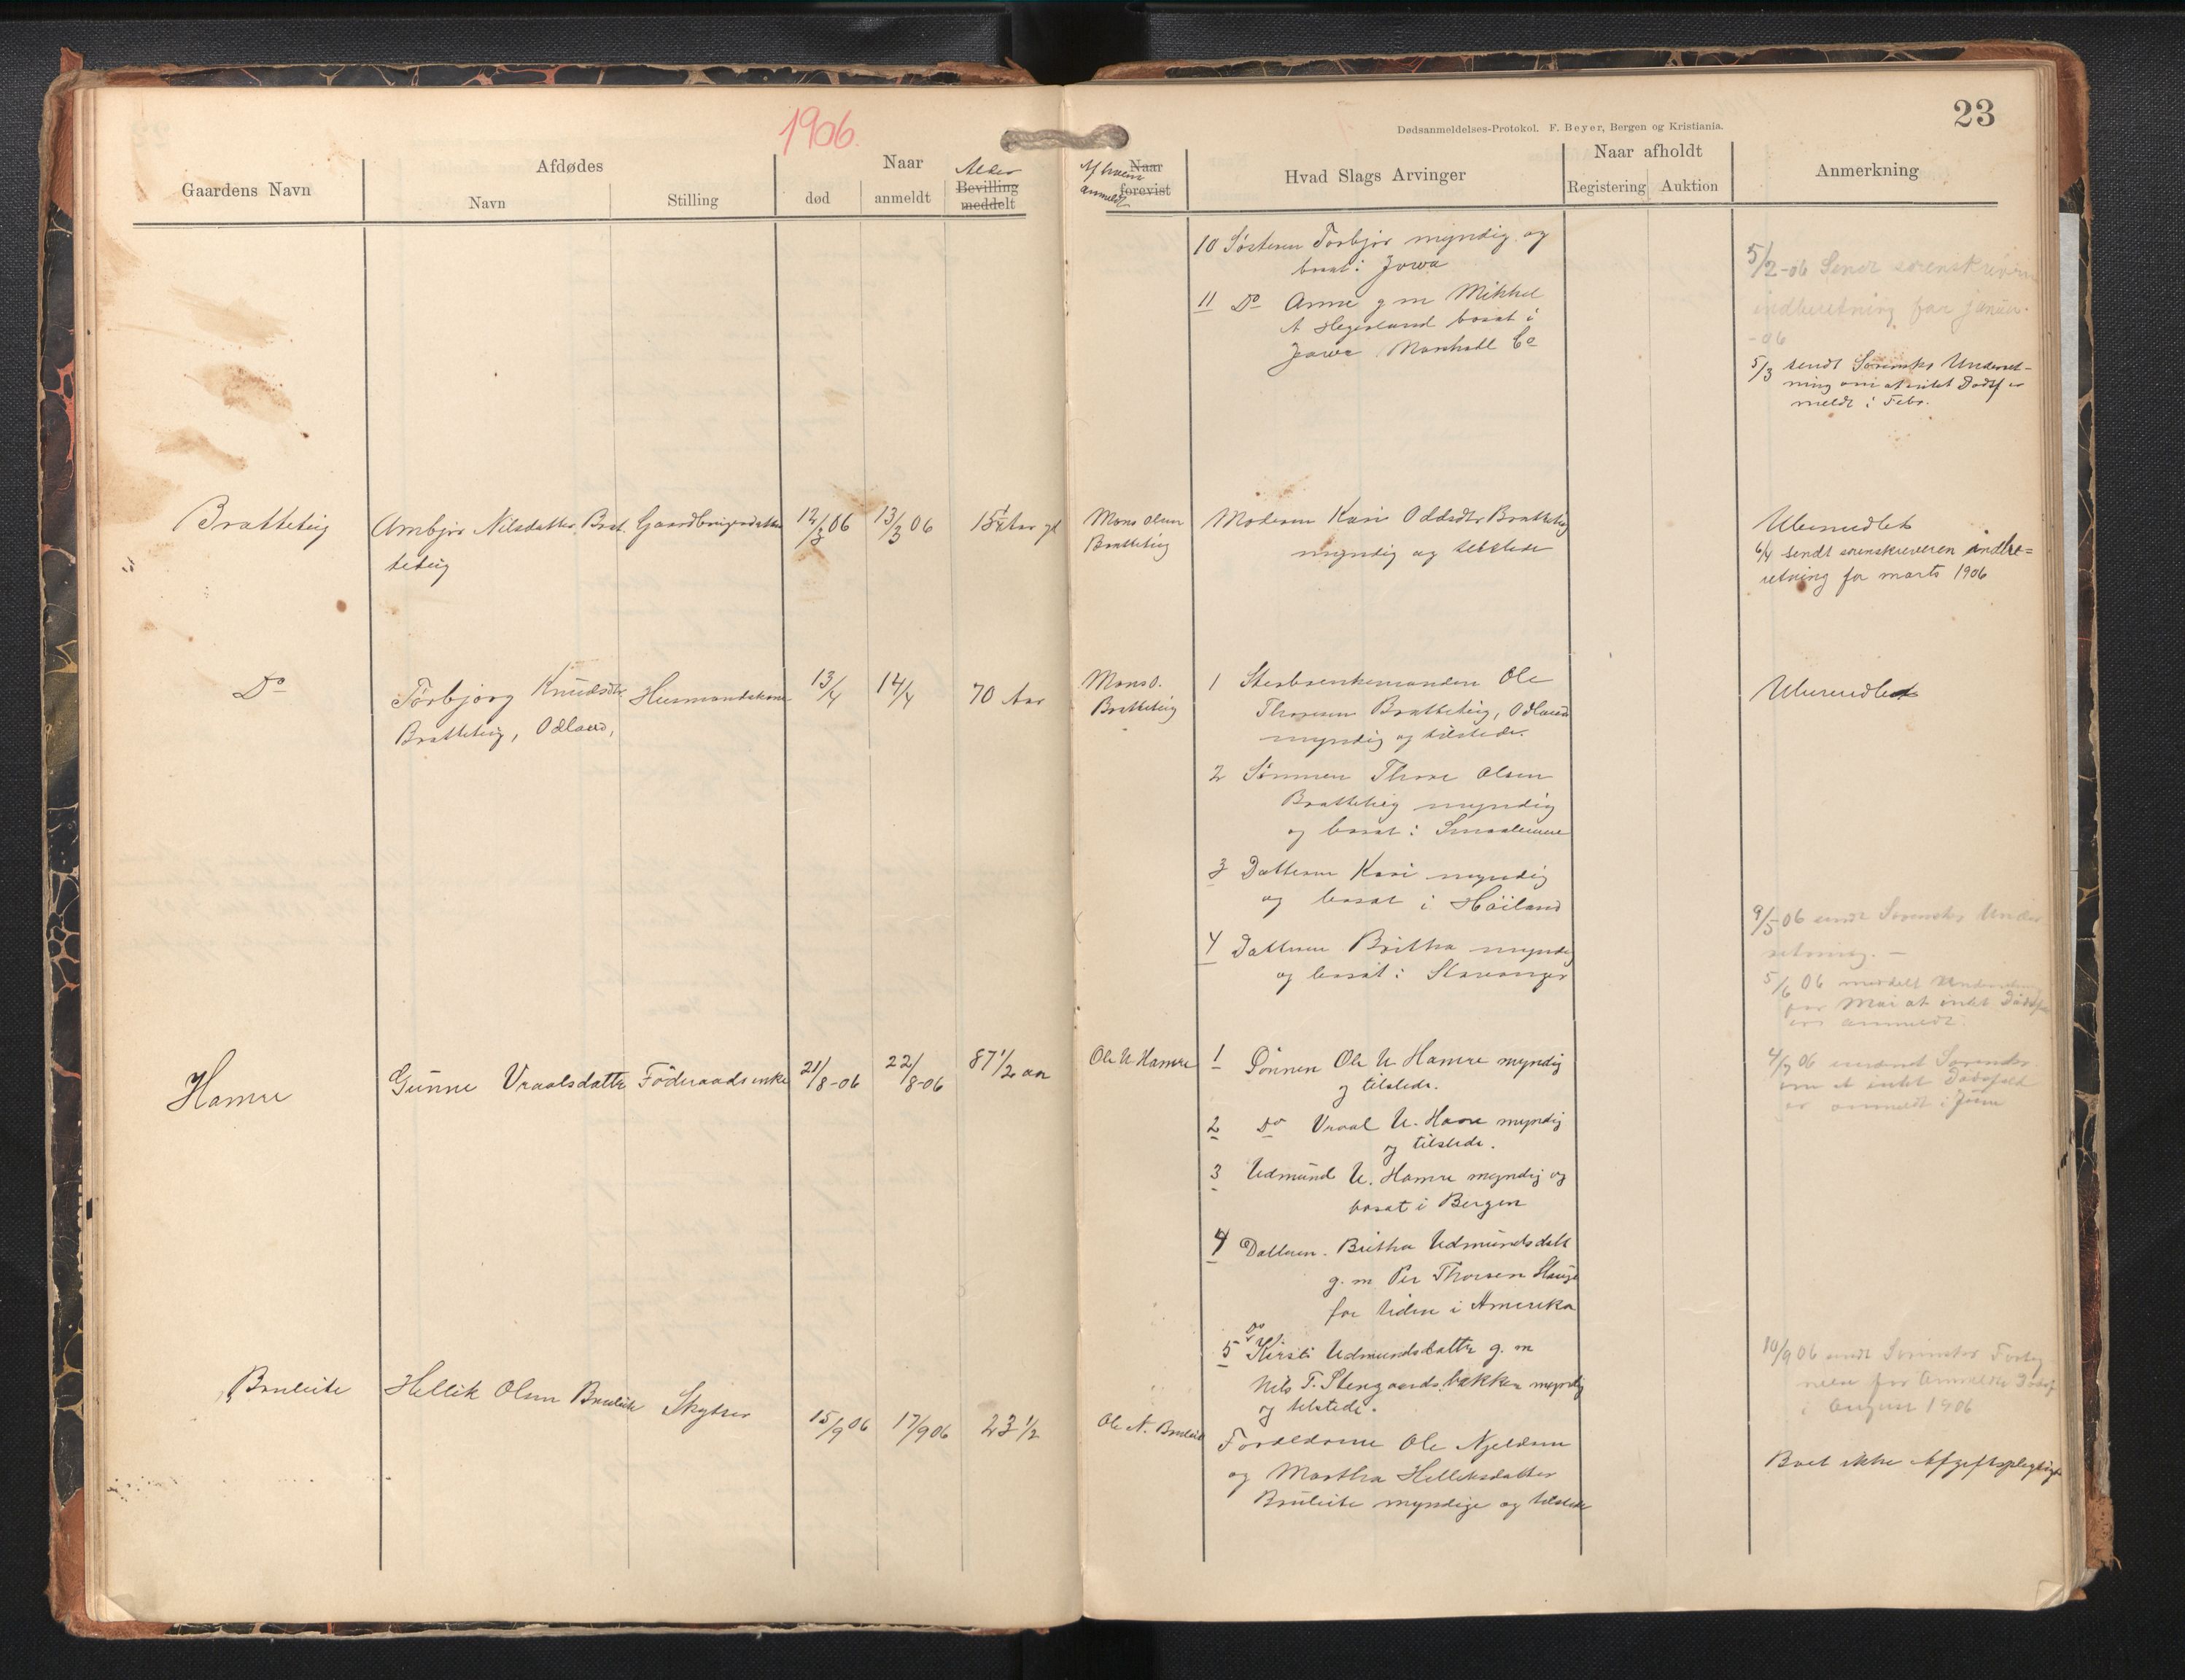 1906.
23
Dødsanmeldelses-Protokol. F. Beyer, Bergen og Kristiania.
Gaardens Navn
Afdødes
Navn
Stilling
Naar
død
anmeldt
Alder
Bevilling
meddelt
Af hvem
anmeldt
Naar
forevist
Hvad Slags Arvinger
Naar afholdt
Registering
Auktion
Anmerkning
10 Søsteren Torbjør myndig og
bosat i Jowa
11 Do Anna g m Mikkel
A Hegerland bosat i
Jowa Marshall Co
5/2-06 Sendt sorenskriveren
indberetning for januar
-06
5/3 sendt Sorensks Underret-
ning om at intet Dødsf er
meldt i Febr.
Bratteteig
Ambjør Nilsdatter Brat-
teteig
Gaardbrugerdatter
12/3 06
13/3 06
Aar gl
Mons Olsen
Bratteteig
Moderen Kari Oddsdtr Bratteteig
myndig og tilstede
Ubemidlet
6/4 sendt sorenskriveren indbe=
retning for marts 1906
Do
Torbjørg Knudsdtr
Bratteteig, Odland,
Husmandskone
13/4
14/4
70 Aar
Mons O.
Bratteteig
1 Sterbsenkemanden Ole
Thoresen Bratteteig, Odland
myndig og tilstede.
2 Sønnen Thore Olsen
Bratteteig myndig
og bosat i Smaalenene
3 Datteren Kari myndig
og bosat i Höiland
4 Datteren Britha myndig
og bosat i Stavanger
Ubemidlet
9/5-06 sendt Sorensks Under
retning. —
5/6 06 meddelt Underretning
for Mai at intet Dødsf
er anmeldt.
4/7 06 Sorensks
om at intet Dødsfald
er anmeldt i Juni
Hamre
Gunne Vraalsdattr
Föderaadsenke
21/8-06
22/8-06
87 1/2 aar
Ole U Hamre
1 Sønnen Ole U Hamre myndig
og tilstede.
2 Do Vraal U. Hamre myndig
og tilstede.
3 Udmund U. Hamre myndig og
bosat i Bergen
4 Datteren Britha Udmundsdatt
g. m Per Thorsen Hauge
for tiden i Amerika
5 Do Kirsti Udmundsdattr g. m
Nils T. Stengaardsbakken myndig
og tilstede.
10/9 06 sendt Sorensks
for Anmeldte Dødsf
i August 1906
Bruleite
Hellik Olsen Bruleite
Skytter
15/9 06
17/9 06
23 1/2
Ole N. Bruleite
Foreldrene Ole Njeldsen
og Martha Helleksdatter
Bruleite myndige og tilstede
Boet ikke Afgiftspligtigt